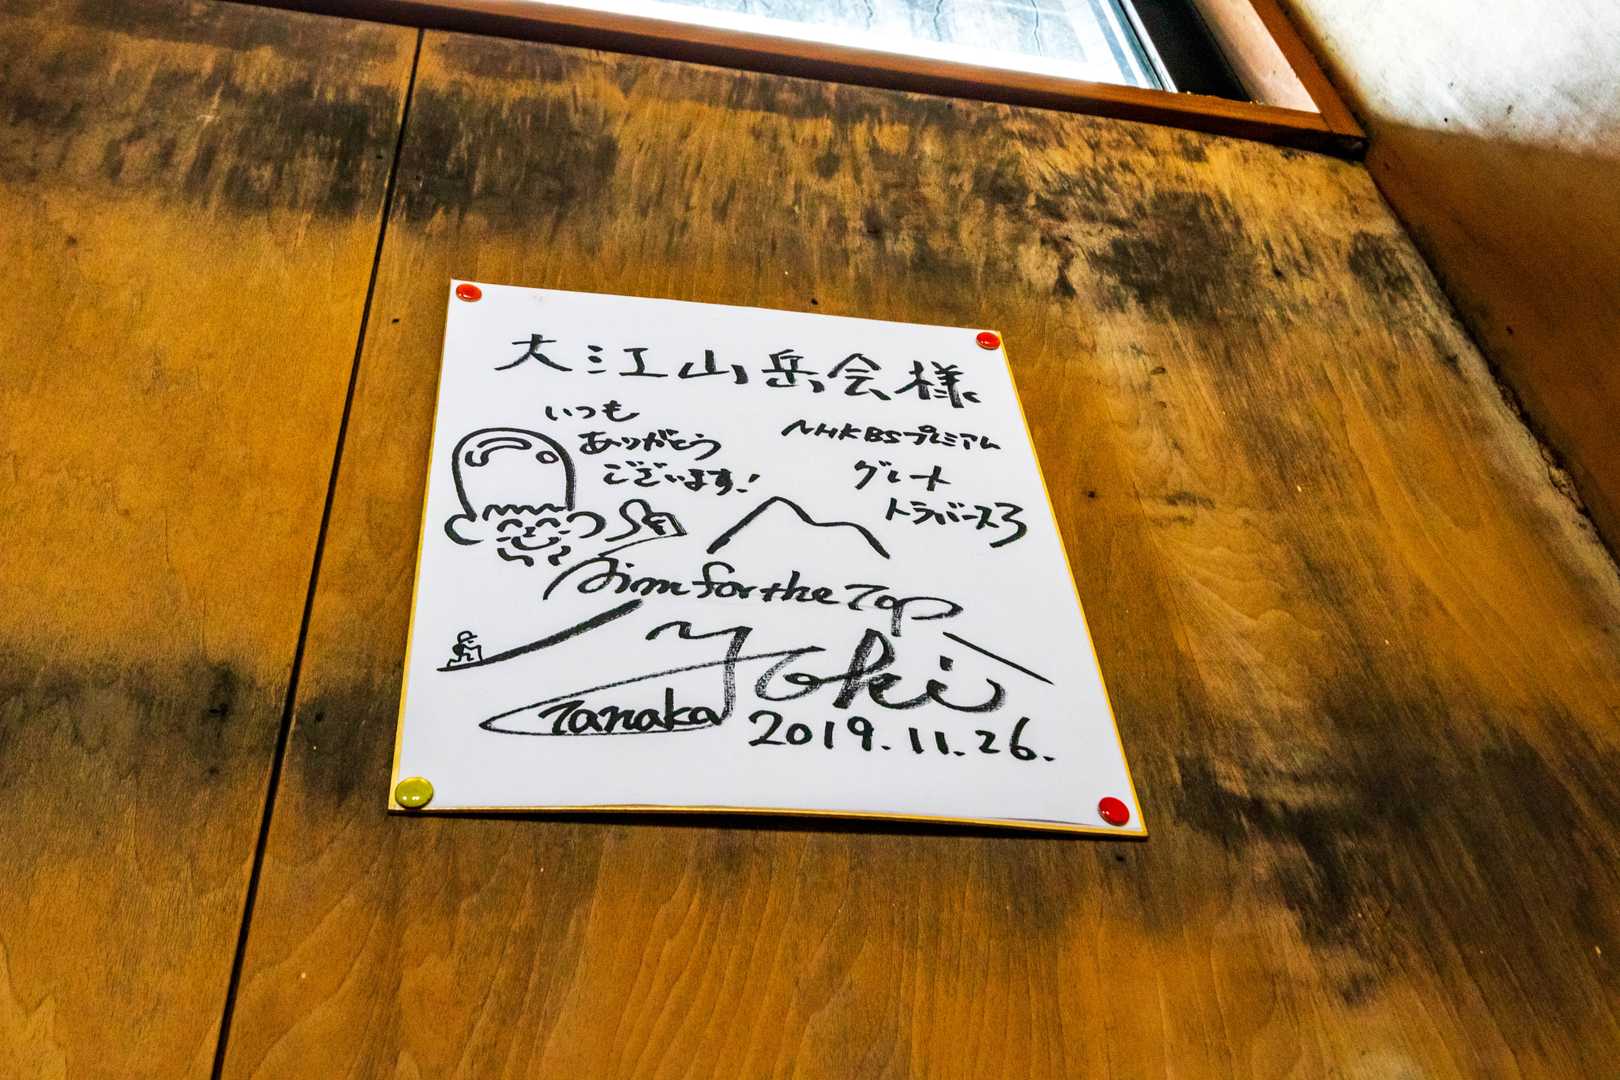 大江山岳会様
いつも
ありがとう
ございます!
NHKBSプレミアム
グレート
トラバース3
Aim for the Top
Yoki
Tanaka
2019.11.26.